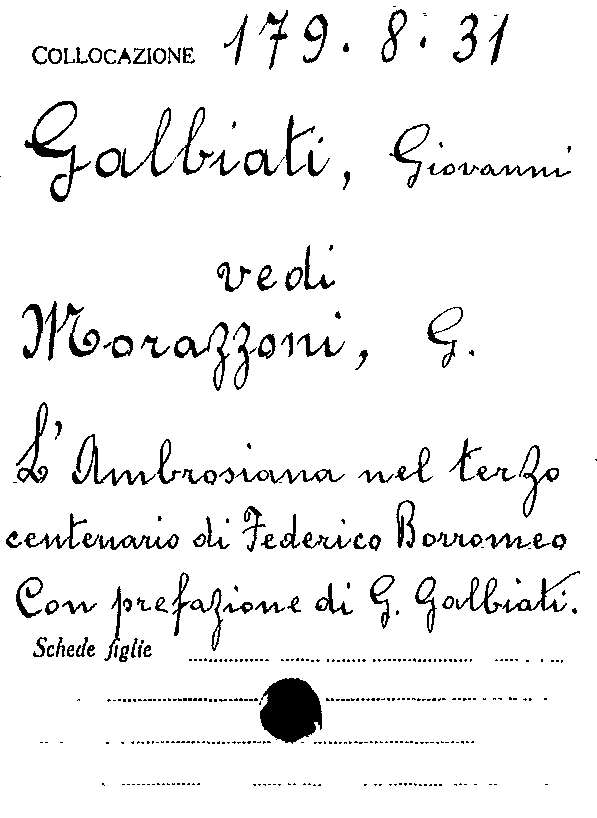 COLLOCAZIONE 179.8.31
Galbiati, Giovanni
vedi
Morazzoni, G.
L'Ambrosiana nel terzo
centenario di Federico Borromeo
Con prefazione di G. Galbiati.
Schede figlie